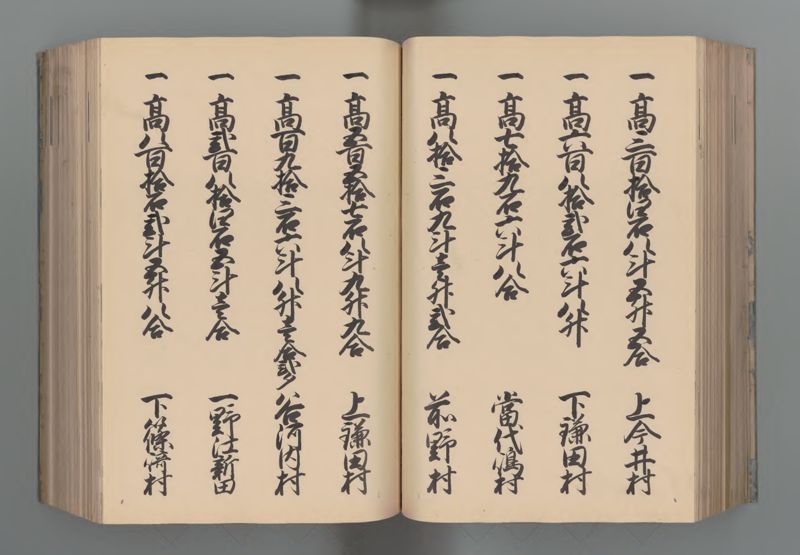 一 高三百拾四石八斗五升五合 上今井村
一 高六百八拾弐石六斗八升 下鎌田村
一 高七拾九石六斗八合 當代嶋村
一 高八拾三石九斗壱升弐合 前野村
一 高五百五拾七石八斗九升九合 上鎌田村
一 高百九拾三石六斗八升壱合弐夕 谷河内村
一 高弐百八拾四石五斗壱合 一野江新田
一 高八百拾石弐斗五升八合 下篠崎村